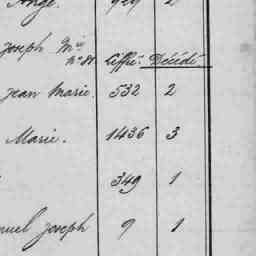 Ange. 929 2
Joseph Mie
n° 81 Liffré Décédé
Jean Marie. 532 2
Marie. 1436 3
349 1
nuel Joseph 9 1